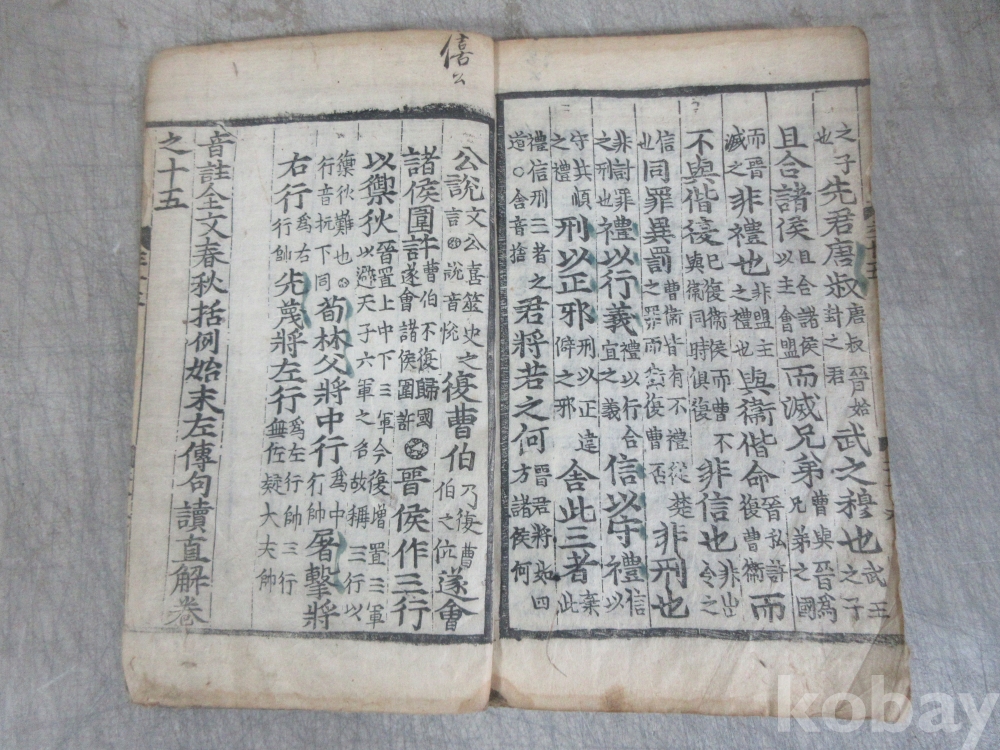 僖公
之子也先君唐叔唐叔晉始封之君武之穆也武王之子
且合諸侯且合諸侯以主會盟而滅兄弟曹與晉爲兄弟之國
而晉滅之非禮也非盟主之禮也與衞偕命晉私許復曹衞而
不與偕復已復衞侯而曹不與衞同時俱復非信也非出令之
信也同罪異罰曹衞皆有不禮從楚之罪而衞復曹否非刑也
非討罪之刑也禮以行義禮以行合宜之義信以守禮信以
守共順之禮刑以正邪刑以正違僻之邪舍此三者棄此
禮信刑三者之道○舍音捨君將若之何晉君將如四方諸侯何
公說文公喜筮史之言○說音悅復曹伯乃復曹伯之位遂會
諸侯圍許曹伯不復歸國遂會諸侯圍許晉侯作三行
以禦狄晉置上中下三軍今復增置三軍以避天子六軍之名故稱三行以
禦狄難也○行音抗下同荀林父將中行爲中行帥屠擊將
右行爲右行帥先蔑將左行爲左行帥三行無佐疑大夫帥
音註全文春秋括例始末左傳句讀直解卷
之十五
kobay